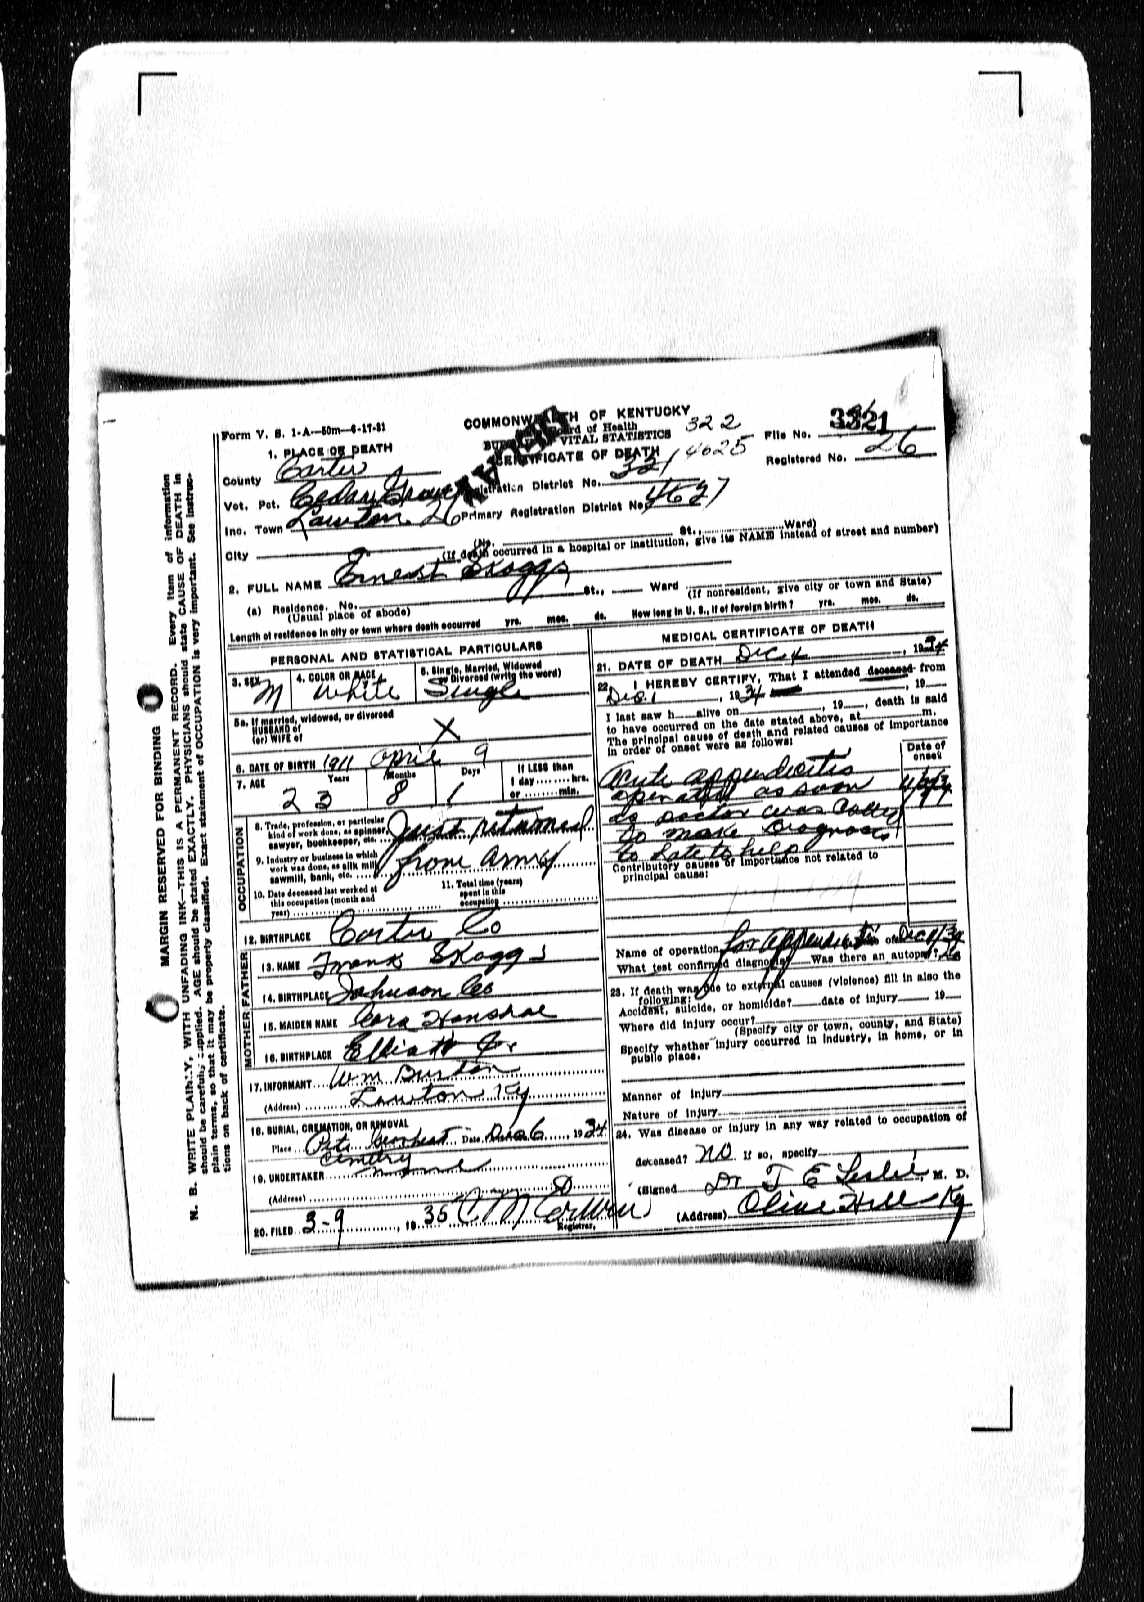 Form V. S. 1-A—50m—6-17-31
COMMONWEALTH OF KENTUCKY
Board of Health
VITAL STATISTICS
CERTIFICATE OF DEATH
322
4625
File No. 3321
Registered No. 26
1. PLACE OF DEATH
County Carter
Vot. Pct. Cedar Grove Registration District No. 321
Inc. Town Lawton 26 Primary Registration District No. 4627
City (No. St., Ward)
(If death occurred in a hospital or institution, give its NAME instead of street and number)
2. FULL NAME Ernest Skaggs
(a) Residence. No. St., Ward
(Usual place of abode) (If nonresident, give city or town and State)
Length of residence in city or town where death occurred yrs. mos. ds. How long in U. S., if of foreign birth? yrs. mos. ds.
PERSONAL AND STATISTICAL PARTICULARS
3. SEX M
4. COLOR OR RACE White
5. Single, Married, Widowed or Divorced (write the word) Single
5a. If married, widowed, or divorced
HUSBAND of
(or) WIFE of X
6. DATE OF BIRTH 1911 April 9
7. AGE Years Months Days If LESS than
23 8 1 1 day........hrs.
or........min.
OCCUPATION
8. Trade, profession, or particular
kind of work done, as spinner,
sawyer, bookkeeper, etc. Just returned
9. Industry or business in which
work was done, as silk mill,
sawmill, bank, etc. from army
10. Date deceased last worked at
this occupation (month and
year)
11. Total time (years)
spent in this
occupation
12. BIRTHPLACE Carter Co
FATHER
13. NAME Frank Skaggs
14. BIRTHPLACE Johnson Co
MOTHER
15. MAIDEN NAME Cora
16. BIRTHPLACE Elliott Co.
17. INFORMANT Wm Burton
(Address) Lawton Ky
18. BURIAL, CREMATION, OR REMOVAL
Place Date Dec 6, 1934
19. UNDERTAKER
(Address)
20. FILED 3-9, 1935 Registrar.
MEDICAL CERTIFICATE OF DEATH
21. DATE OF DEATH Dec 4, 1934
22. I HEREBY CERTIFY, That I attended deceased from
Dec. 1, 1934, 19
I last saw h alive on, 19, death is said
to have occurred on the date stated above, at m.
The principal cause of death and related causes of importance
in order of onset were as follows:
Date of
onset
Acute appendicitis
operated as soon
as doctor was called
to make Diagnosis
to late to help
Contributory causes of importance not related to
principal cause:
Name of operation for appendicitis Date of Dec 1/34
What test confirmed diagnosis? Was there an autopsy? No
23. If death was due to external causes (violence) fill in also the
following:
Accident, suicide, or homicide? date of injury 19
Where did injury occur?
(Specify city or town, county, and State)
Specify whether injury occurred in industry, in home, or in
public place.
Manner of injury
Nature of injury
24. Was disease or injury in any way related to occupation of
deceased? NO If so, specify
(Signed Dr T E Leslie, M. D.
(Address) Olive Hill Ky
MARGIN RESERVED FOR BINDING
N. B. WRITE PLAINLY, WITH UNFADING INK—THIS IS A PERMANENT RECORD. Every item of information
should be carefully supplied. AGE should be stated EXACTLY. PHYSICIANS should state CAUSE OF DEATH in
plain terms, so that it may be properly classified. Exact statement of OCCUPATION is very important. See instruc-
tions on back of certificate.